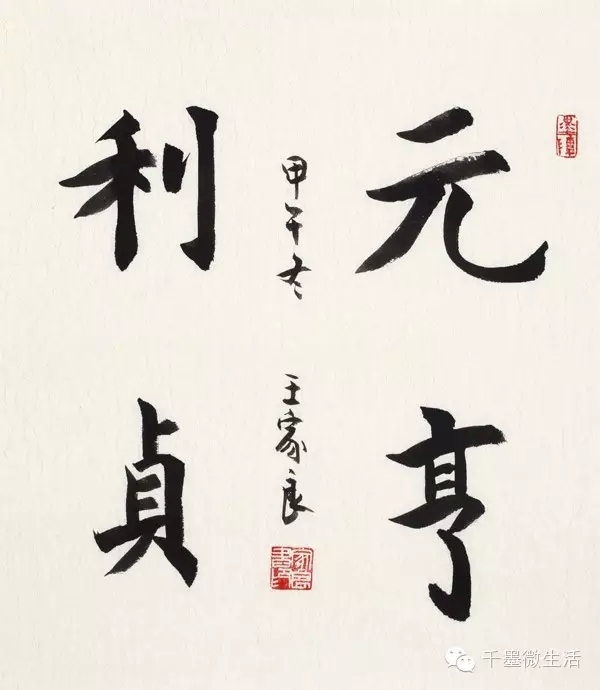 元亨
利貞
甲午冬
王家良
千墨微生活